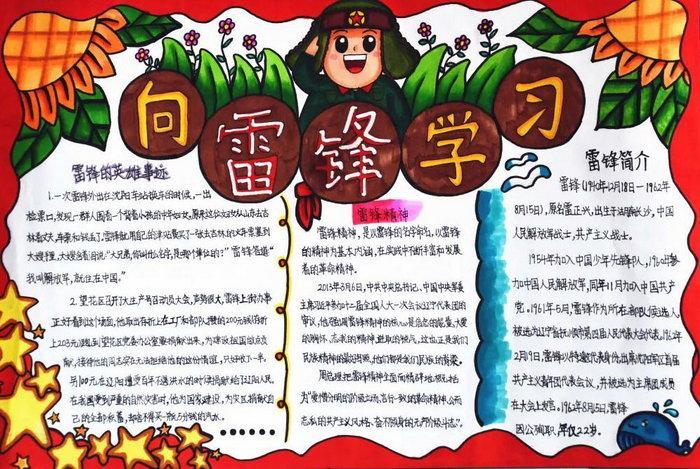 向雷锋学习
雷锋的英雄事迹
1.一次雷锋外出在沈阳车站换车的时候,一出
检票口,发现一群人围着一个背着小孩的中年妇女,原来这位妇女从山东去吉
林看丈夫,车票和钱丢了。雷锋
大嫂手里,大嫂含着泪说:“大兄弟,你叫什么名字,是哪个单位的?”雷锋答道“
我叫解放军,就住在中国。”
2.望花区召开了大生产号召动员大会,声势很大,雷锋上街办事
正好看到这个场面,他取出存折上在工厂和部队攒的200元钱
献,接待他的同志实在无法拒绝他的这份情谊,只好收下一半。
另100元在辽阳遭受百年不遇洪水的时候捐献给了辽阳人民。
在我国受到严重的自然灾害时,他为国家建设,为灾区捐献出自
己的全部积蓄,却舍不得喝一瓶
雷锋精神
雷锋精神,是以雷锋的名字命名,以雷锋
的精神为基本内涵,在实践中不断丰富和发展
着的革命精神。
2013年3月6日,中共中央总书记、中国中央军委
主席习近平参加十二届全国人大一次会议辽宁代表团的
审议,他强调雷锋精神的核心是信念的能量、大爱
的胸怀、忘我的精神、进取的锐气,这也正是我们
民族精神的最好写照,他们都是我们民族的脊梁。
周总理把雷锋精神全面而精辟地概括
为“爱憎分明的阶级立场、言行一致的革命精神、公而
忘私的共产主义风格、奋不顾身的无产阶级斗志”。
雷锋简介
雷锋(1940年12月18日-1962年
8月15日),原名雷正兴,出生于湖南长沙,中国
人民解放军战士,共产主义战士。
1954年加入中国少年先锋队,1960年参
加中国人民解放军,同年11月加入中国共产
党。1961年5月,雷锋作为所在部队候选人,
被选为辽宁省抚顺市第四届人民代表大会代表。1962年
2月19日,雷锋以特邀代表身份出席沈阳军区首届
共产主义青年团代表会议,并被选为主席团成员
在大会上发言。1962年8月15日,雷锋
因公殉职,年仅22岁。